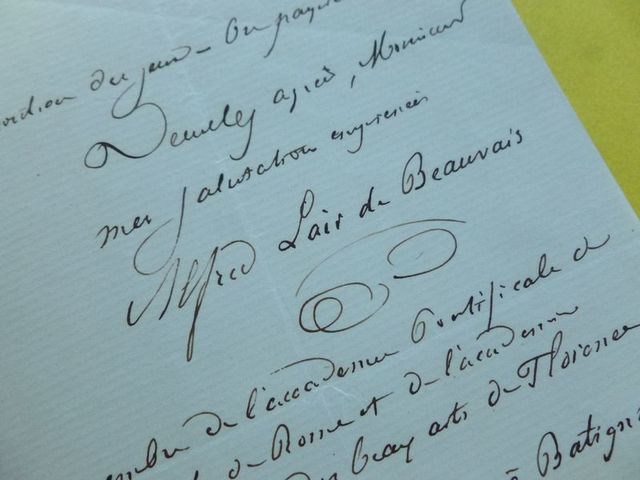 du jour - On
Veuillez agréer, Monsieur
mes salutations empressées
Alfred Lair de Beauvais
membre de l'accademie Pontificale de
de Rome et de l'academie
des beaux arts de Florence
à Batign